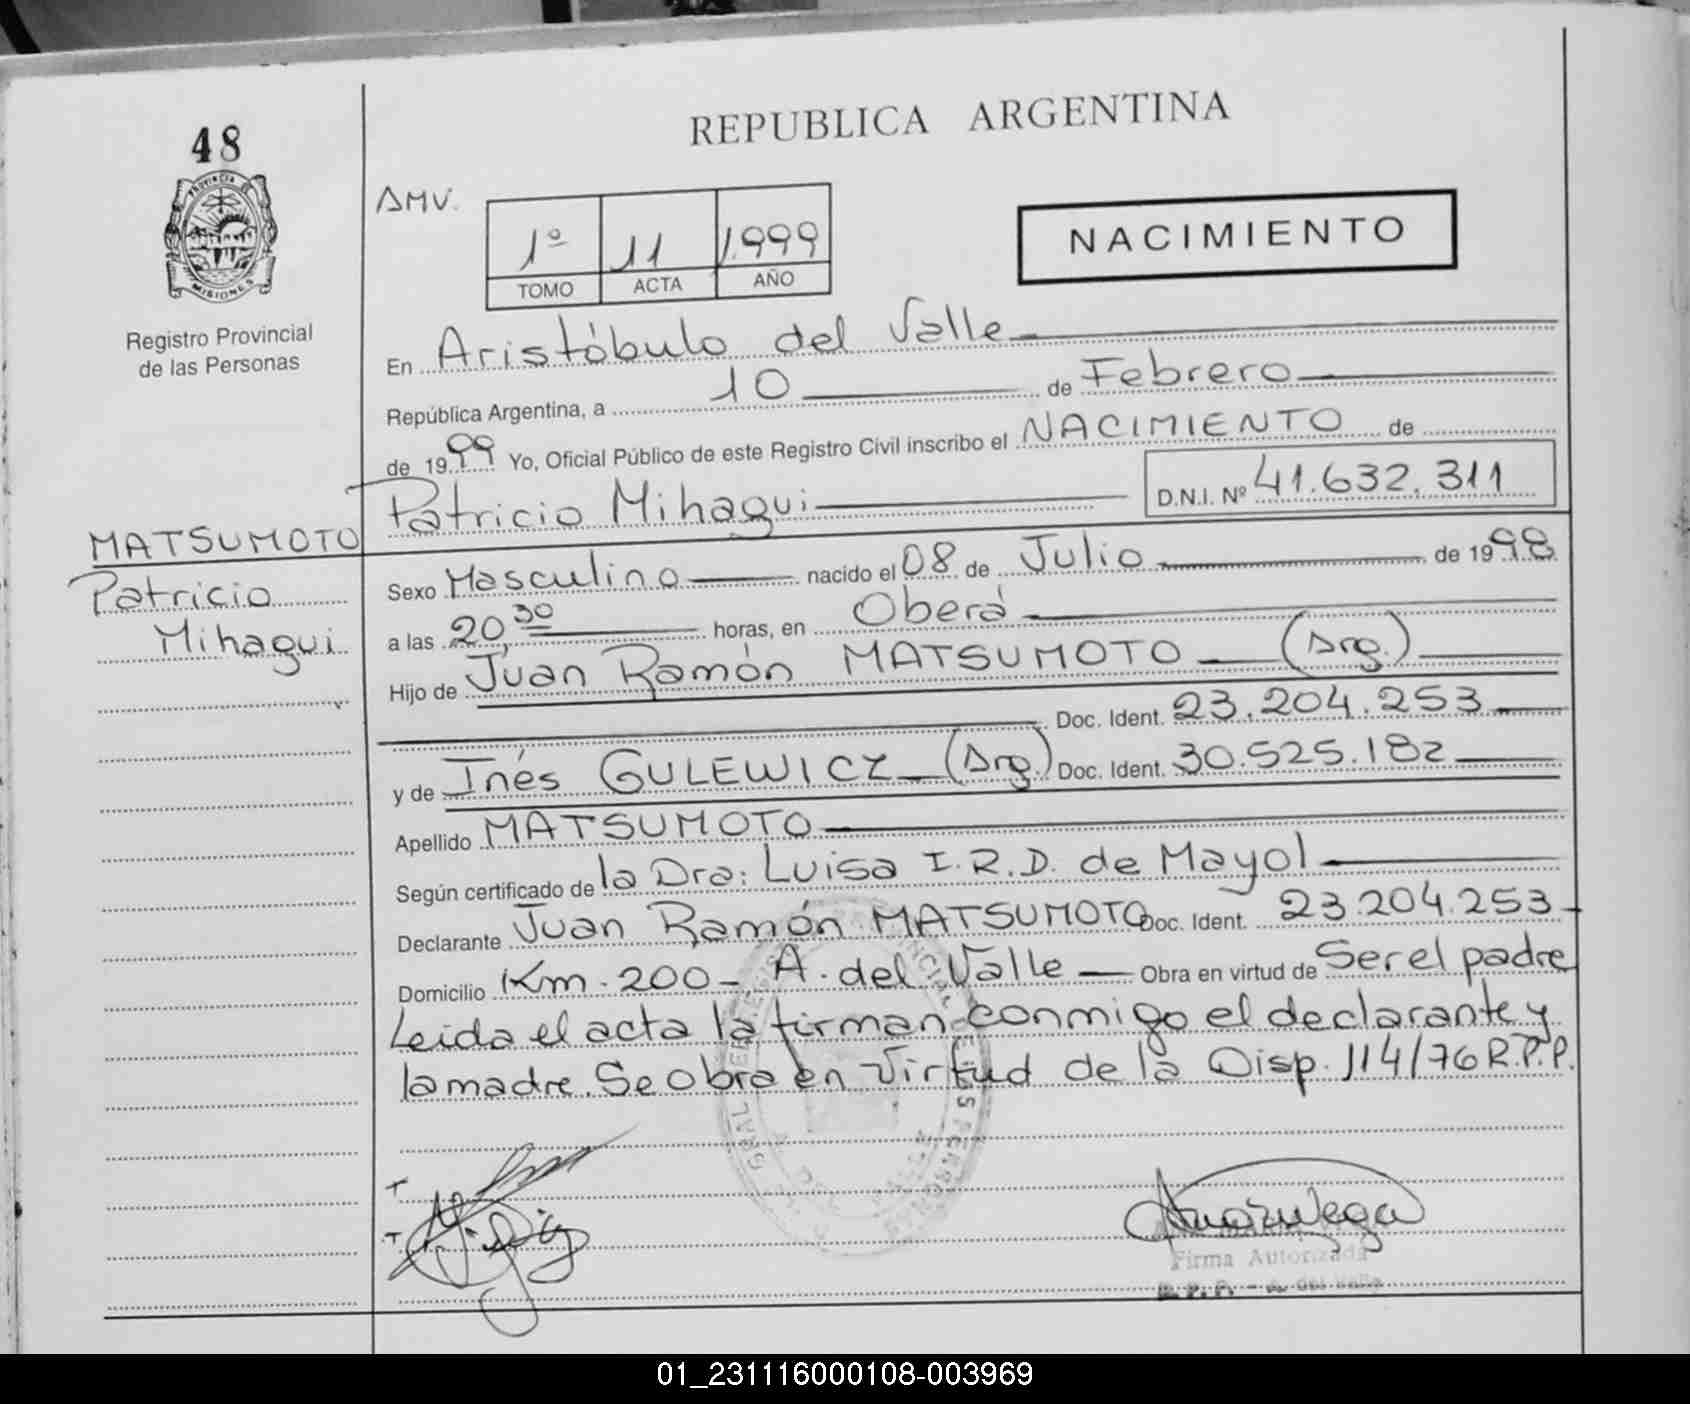 48
REPUBLICA ARGENTINA
PROVINCIA DE
MISIONES
Registro Provincial
de las Personas
AMV.
1º 11 1.999
TOMO ACTA AÑO
NACIMIENTO
En Aristóbulo del Valle
República Argentina, a 10 de Febrero
de 1999 Yo, Oficial Público de este Registro Civil inscribo el NACIMIENTO de
Patricio Mihagui D.N.I. Nº 41.632.311
MATSUMOTO
Patricio
Mihagui
Sexo Masculino nacido el 08 de Julio de 1998
a las 20,30 horas, en Oberá
Hijo de Juan Ramón MATSUMOTO (Arg.)
Doc. Ident. 23.204.253
y de Inés GULEWICZ (Arg.) Doc. Ident. 30.525.182
Apellido MATSUMOTO
Según certificado de la Dra: Luisa I.R.D. de Mayol
Declarante Juan Ramón MATSUMOTO Doc. Ident. 23.204.253
Domicilio Km. 200 - A. del Valle Obra en virtud de Ser el padre
Leida el acta la firman conmigo el declarante y
la madre. Se obra en virtud de la Disp. 114/76 R.P.P.
Firma Autorizada
R. P. P. - A. del Valle
01_231116000108-003969